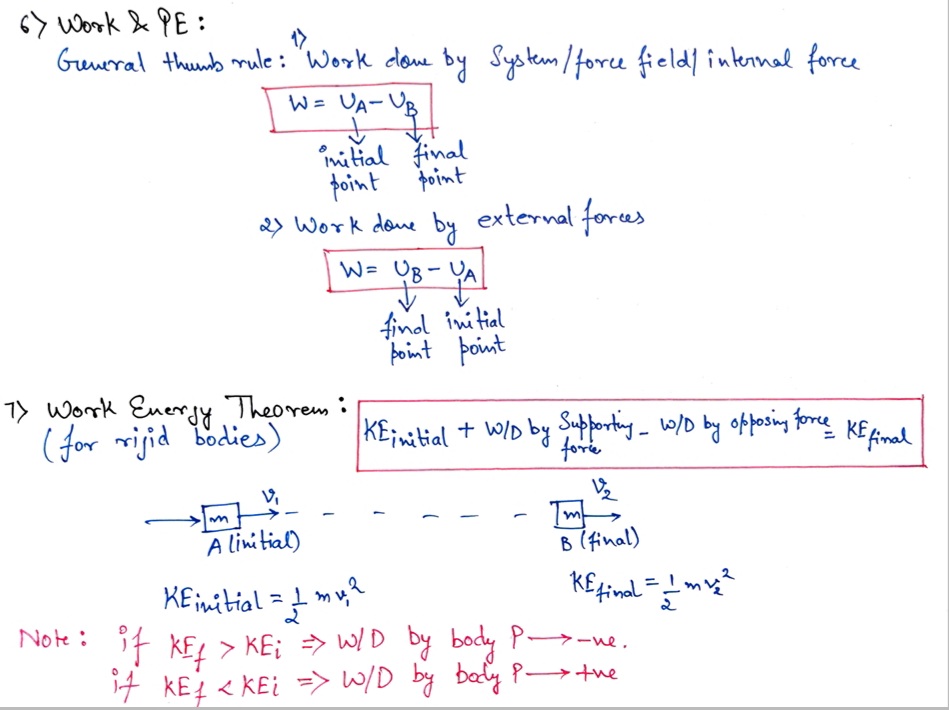 6> Work & PE:
General thumb rule: 1> Work done by System/force field/internal force
W = U_A - U_B
initial point final point
2> Work done by external forces
W = U_B - U_A
final point initial point
7> Work Energy Theorem:
(for rigid bodies)
KE initial + W/D by Supporting force - W/D by opposing force = KE final
m v₁ - - - - - m v₂
A (initial) B (final)
KE initial = 1/2 m v₁² KE final = 1/2 m v₂²
Note: if KE_f > KE_i => W/D by body P → -ve.
if KE_f < KE_i => W/D by body P → +ve